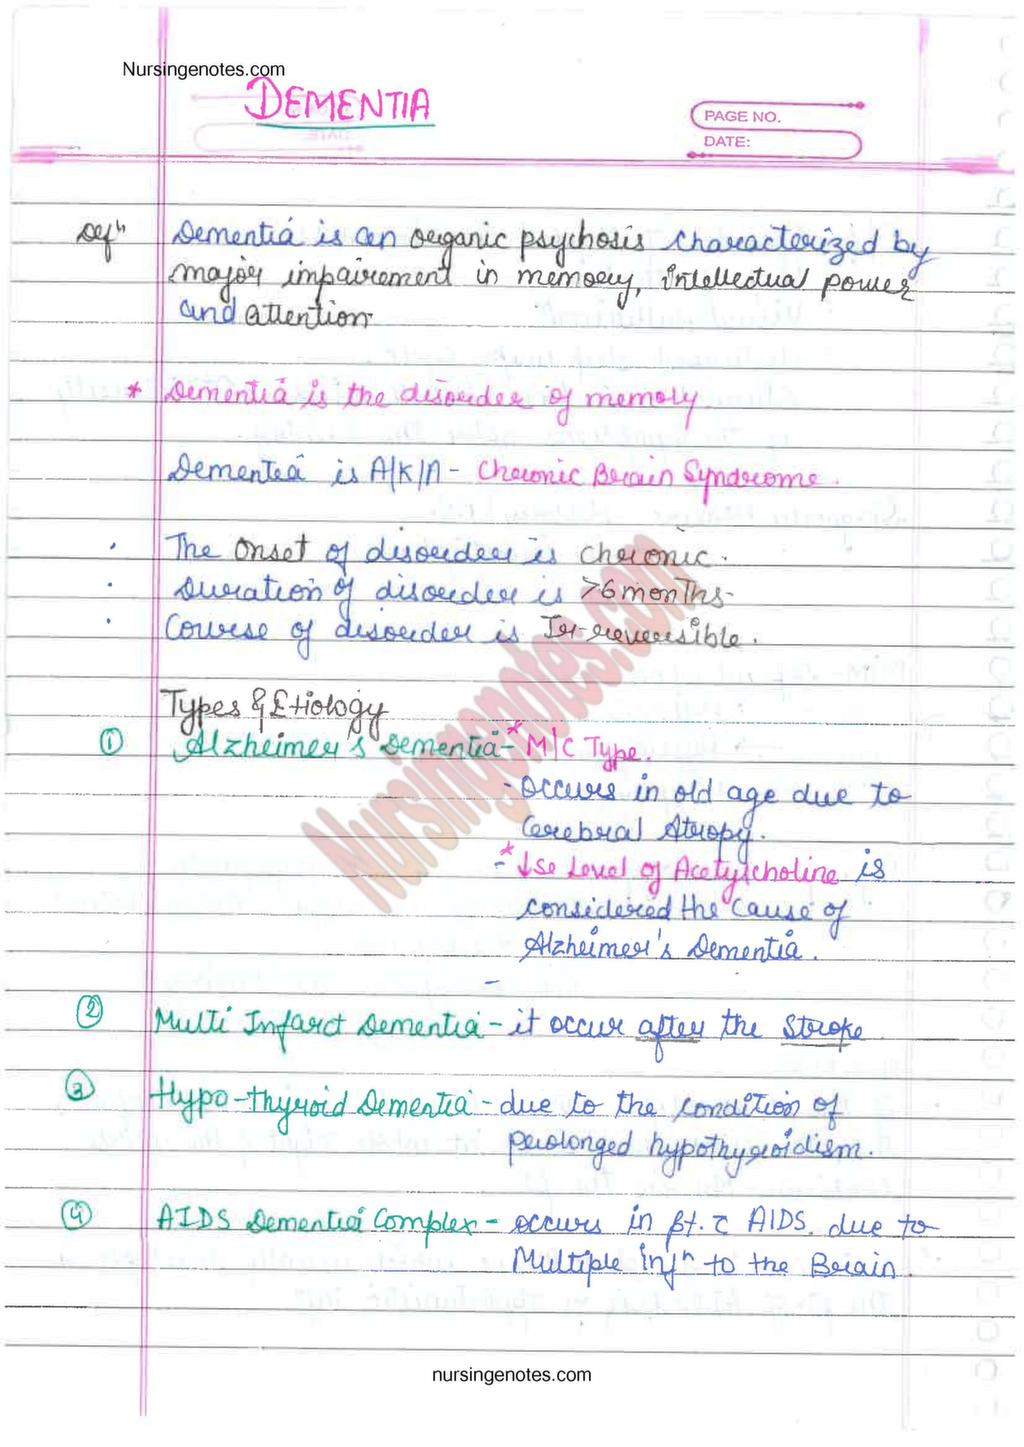 Nursingenotes.com
DEMENTIA
PAGE NO.
DATE:
Defⁿ Dementia is an organic psychosis characterized by
major impairement in memory, intellectual power
and attention
* Dementia is the disorder of memory
Dementia is A/K/A - Chronic Brain Syndrome.
· The Onset of disorder is chronic.
· Duration of disorder is >6 months-
· Course of disorder is Ir-reversible.
Types & Etiology
① Alzheimer's Dementia - * M/C Type.
- Occurs in old age due to
Cerebral Atropy.
- * ↓se Level of Acetylcholine is
considered the cause of
Alzheimer's Dementia.
-
② Multi Infarct Dementia - it occur after the Stroke
③ Hypo-thyroid Dementia - due to the condition of
prolonged hypothyroidism.
④ AIDS Dementia Complex - occurs in pt. c̄ AIDS. due to
Multiple infⁿ to the Brain.
Nursingenotes.com
nursingenotes.com